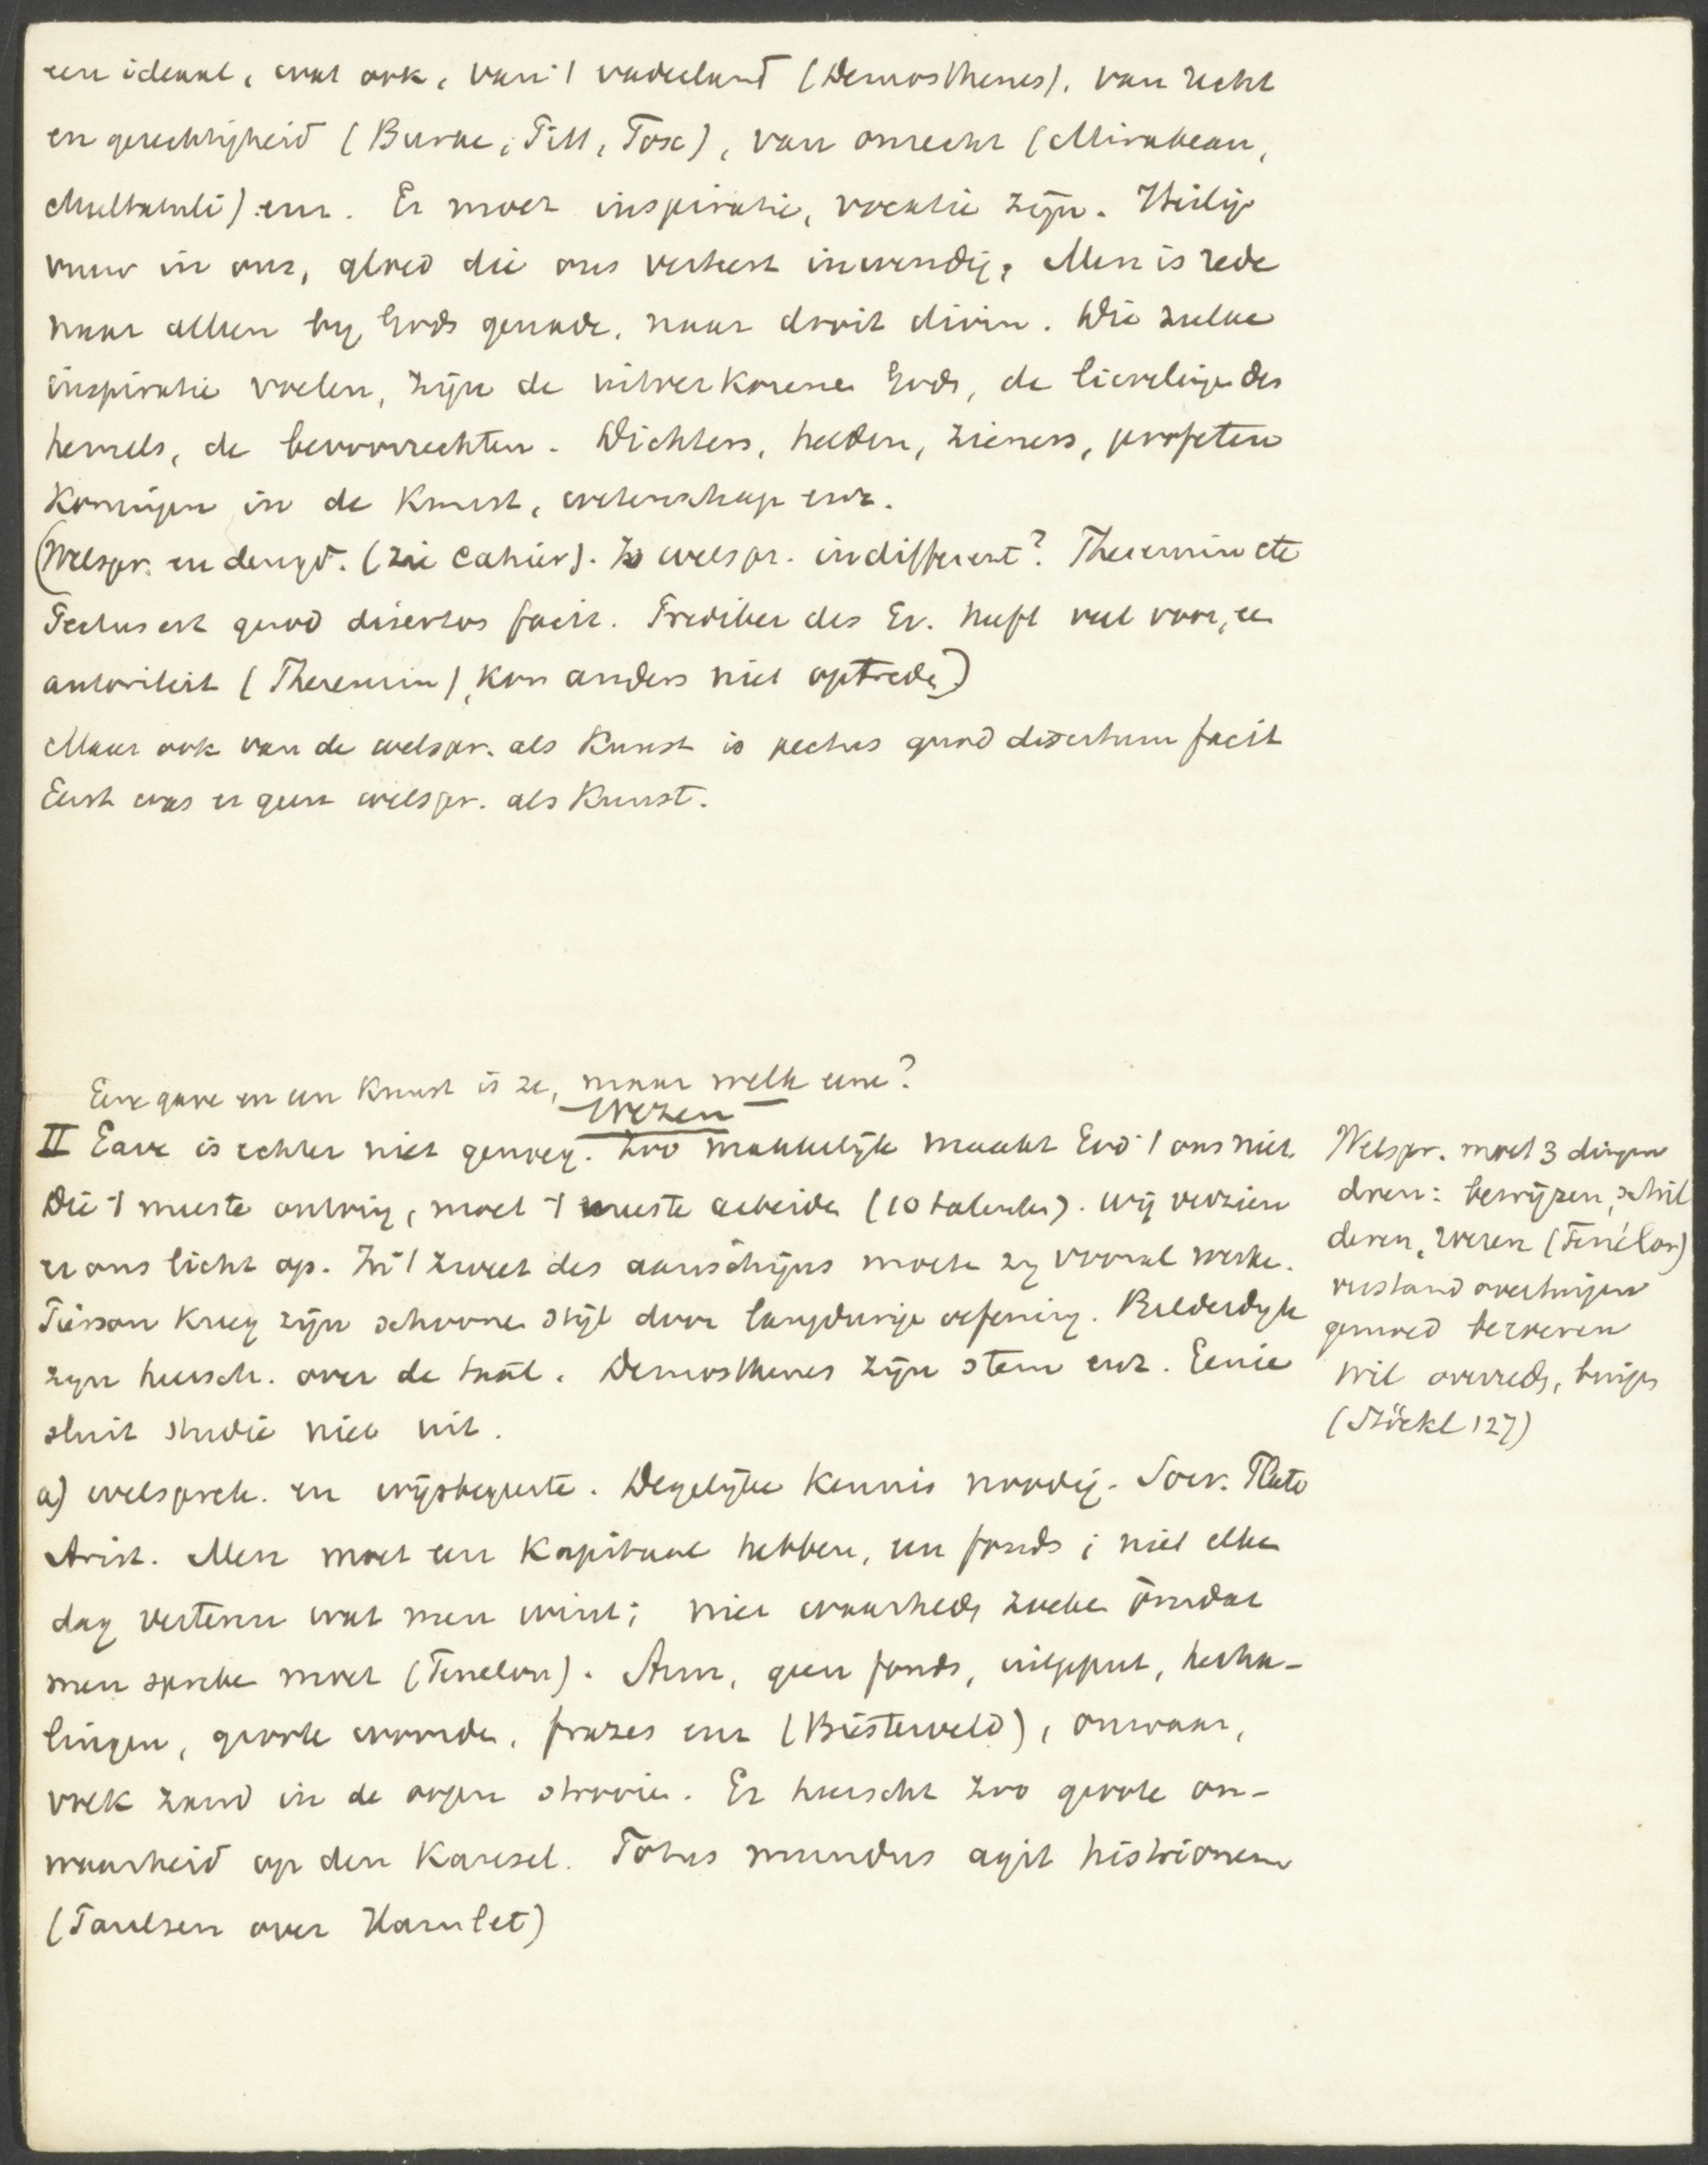 een ideaal, wat ook, van 't vaderland (Demosthenes), van recht
en gerechtigheid (Burke, Pitt, Fox), van onrecht (Mirabeau,
Multatuli) enz. Er moet inspiratie, vocatie zijn. Heilig
vuur in ons, gloed die ons verteert inwendig. Men is rede
naar alleen by Gods genade, naar droit divin. Die zulke
inspiratie voelen, zijn de uitverkorene Gods, de lievelingen des
hemels, de bevoorrechten. Dichters, helden, zieners, profeten
Koningen in de Kunst, wetenschap enz.
(Welspr. en deugd. (zie cahier). Is welspr. indifferent? Theremin etc
Pectus est quod disertos facit. Prediker des Ev. heeft veel voor, een
autoriteit (Theremin), kon anders niet optreden)
Maar ook van de welspr. als Kunst is pectus quod disertum facit
Eerst was er geen welspr. als Kunst.
Eene gave en een Kunst is ze, maar welk eene?
Wezen
II Gave is echter niet genoeg. Zoo makkelijk maakt God 't ons niet.
Die 't meeste ontving, moet 't meeste arbeiden (10 talenten). Wij verzien
er ons licht op. In 't zweet des aanschijns moeten zy vooral werken.
Pierson kreeg zijn schoonen stijl door langdurige oefening. Bilderdyk
zyn heersch. over de taal. Demosthenes zijn stem enz. Genie
sluit studie niet uit.
a) welsprek. en wijsbegeerte. Degelijke Kennis noodig. Socr. Plato
Arist. Men moet een Kapitaal hebben, een fonds; niet elken
dag verteren wat men wint; niet waarheden zoeken omdat
men spreken moet (Fenelon). Arm, geen fonds, uitgeput, herha-
lingen, groote woorden, frazes enz (Busterveld), onwaar,
vrek zand in de oogen strooien. Er heerscht zoo groote on-
waarheid op den Kansel. Totus mundus agit histrionem
(Paulsen over Hamlet)
Welspr. moet 3 dingen
doen: bewijzen, schil
deren, roeren (Fénélon)
verstand overtuigen
gemoed bewegen
wil overreden, buigen
(Stöckl 127)